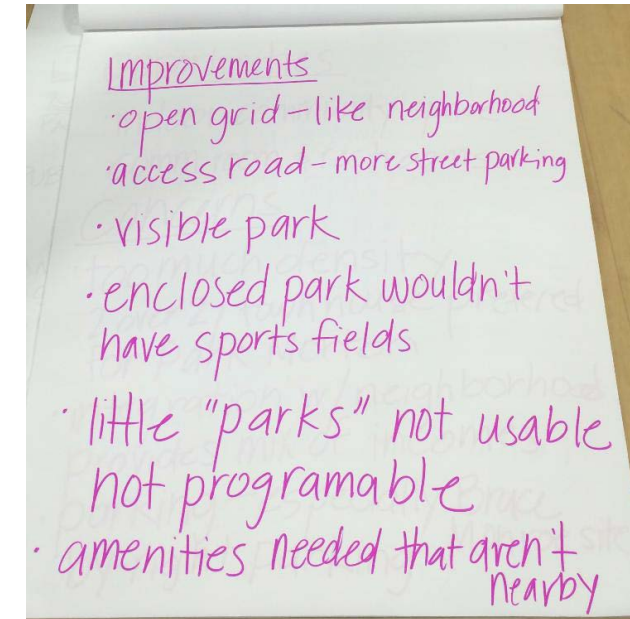 Improvements
· open grid - like neighborhood
· access road - more street parking
· visible park
· enclosed park wouldn't
have sports fields
· little "parks" not usable
not programable
· amenities needed that aren't
nearby